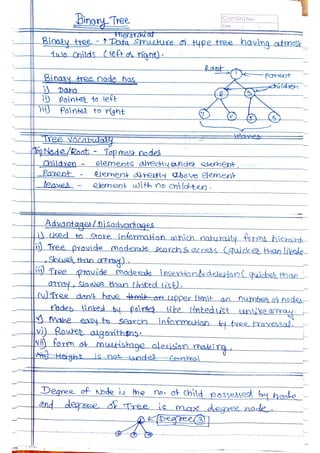 Binary Tree
Hierarchial
Binary tree - Data Structure of type tree having atmost
two childs (left or right).
Root
1
Parent
children
Binary tree node has
i) Data
ii) Pointer to left
iii) Pointer to right
2
3
leaves
Tree Vocabulary
Top Node/Root - Topmost nodes
Children - elements directly under element.
Parent - element directly above element
leaves - element with no children.
Advantages/Disadvantages
i) Used to store information which naturally forms hierarch
ii) Tree provide moderate search & access (quicker than linkle
slower than array).
iii) Tree provide moderate insertion & deletion (quicker than
array, slower than linked list).
iv) Tree don't have upper limit on number of nodes
nodes linked by pointer like linkedlist unlike array.
v) make easy to search information by tree traversal.
vi) Router algorithms.
vii) form of multistage decision making.
Height is not under control
Degree of Node is the no. of child possessed by node
and degree of Tree is max degree node.
Degree 3